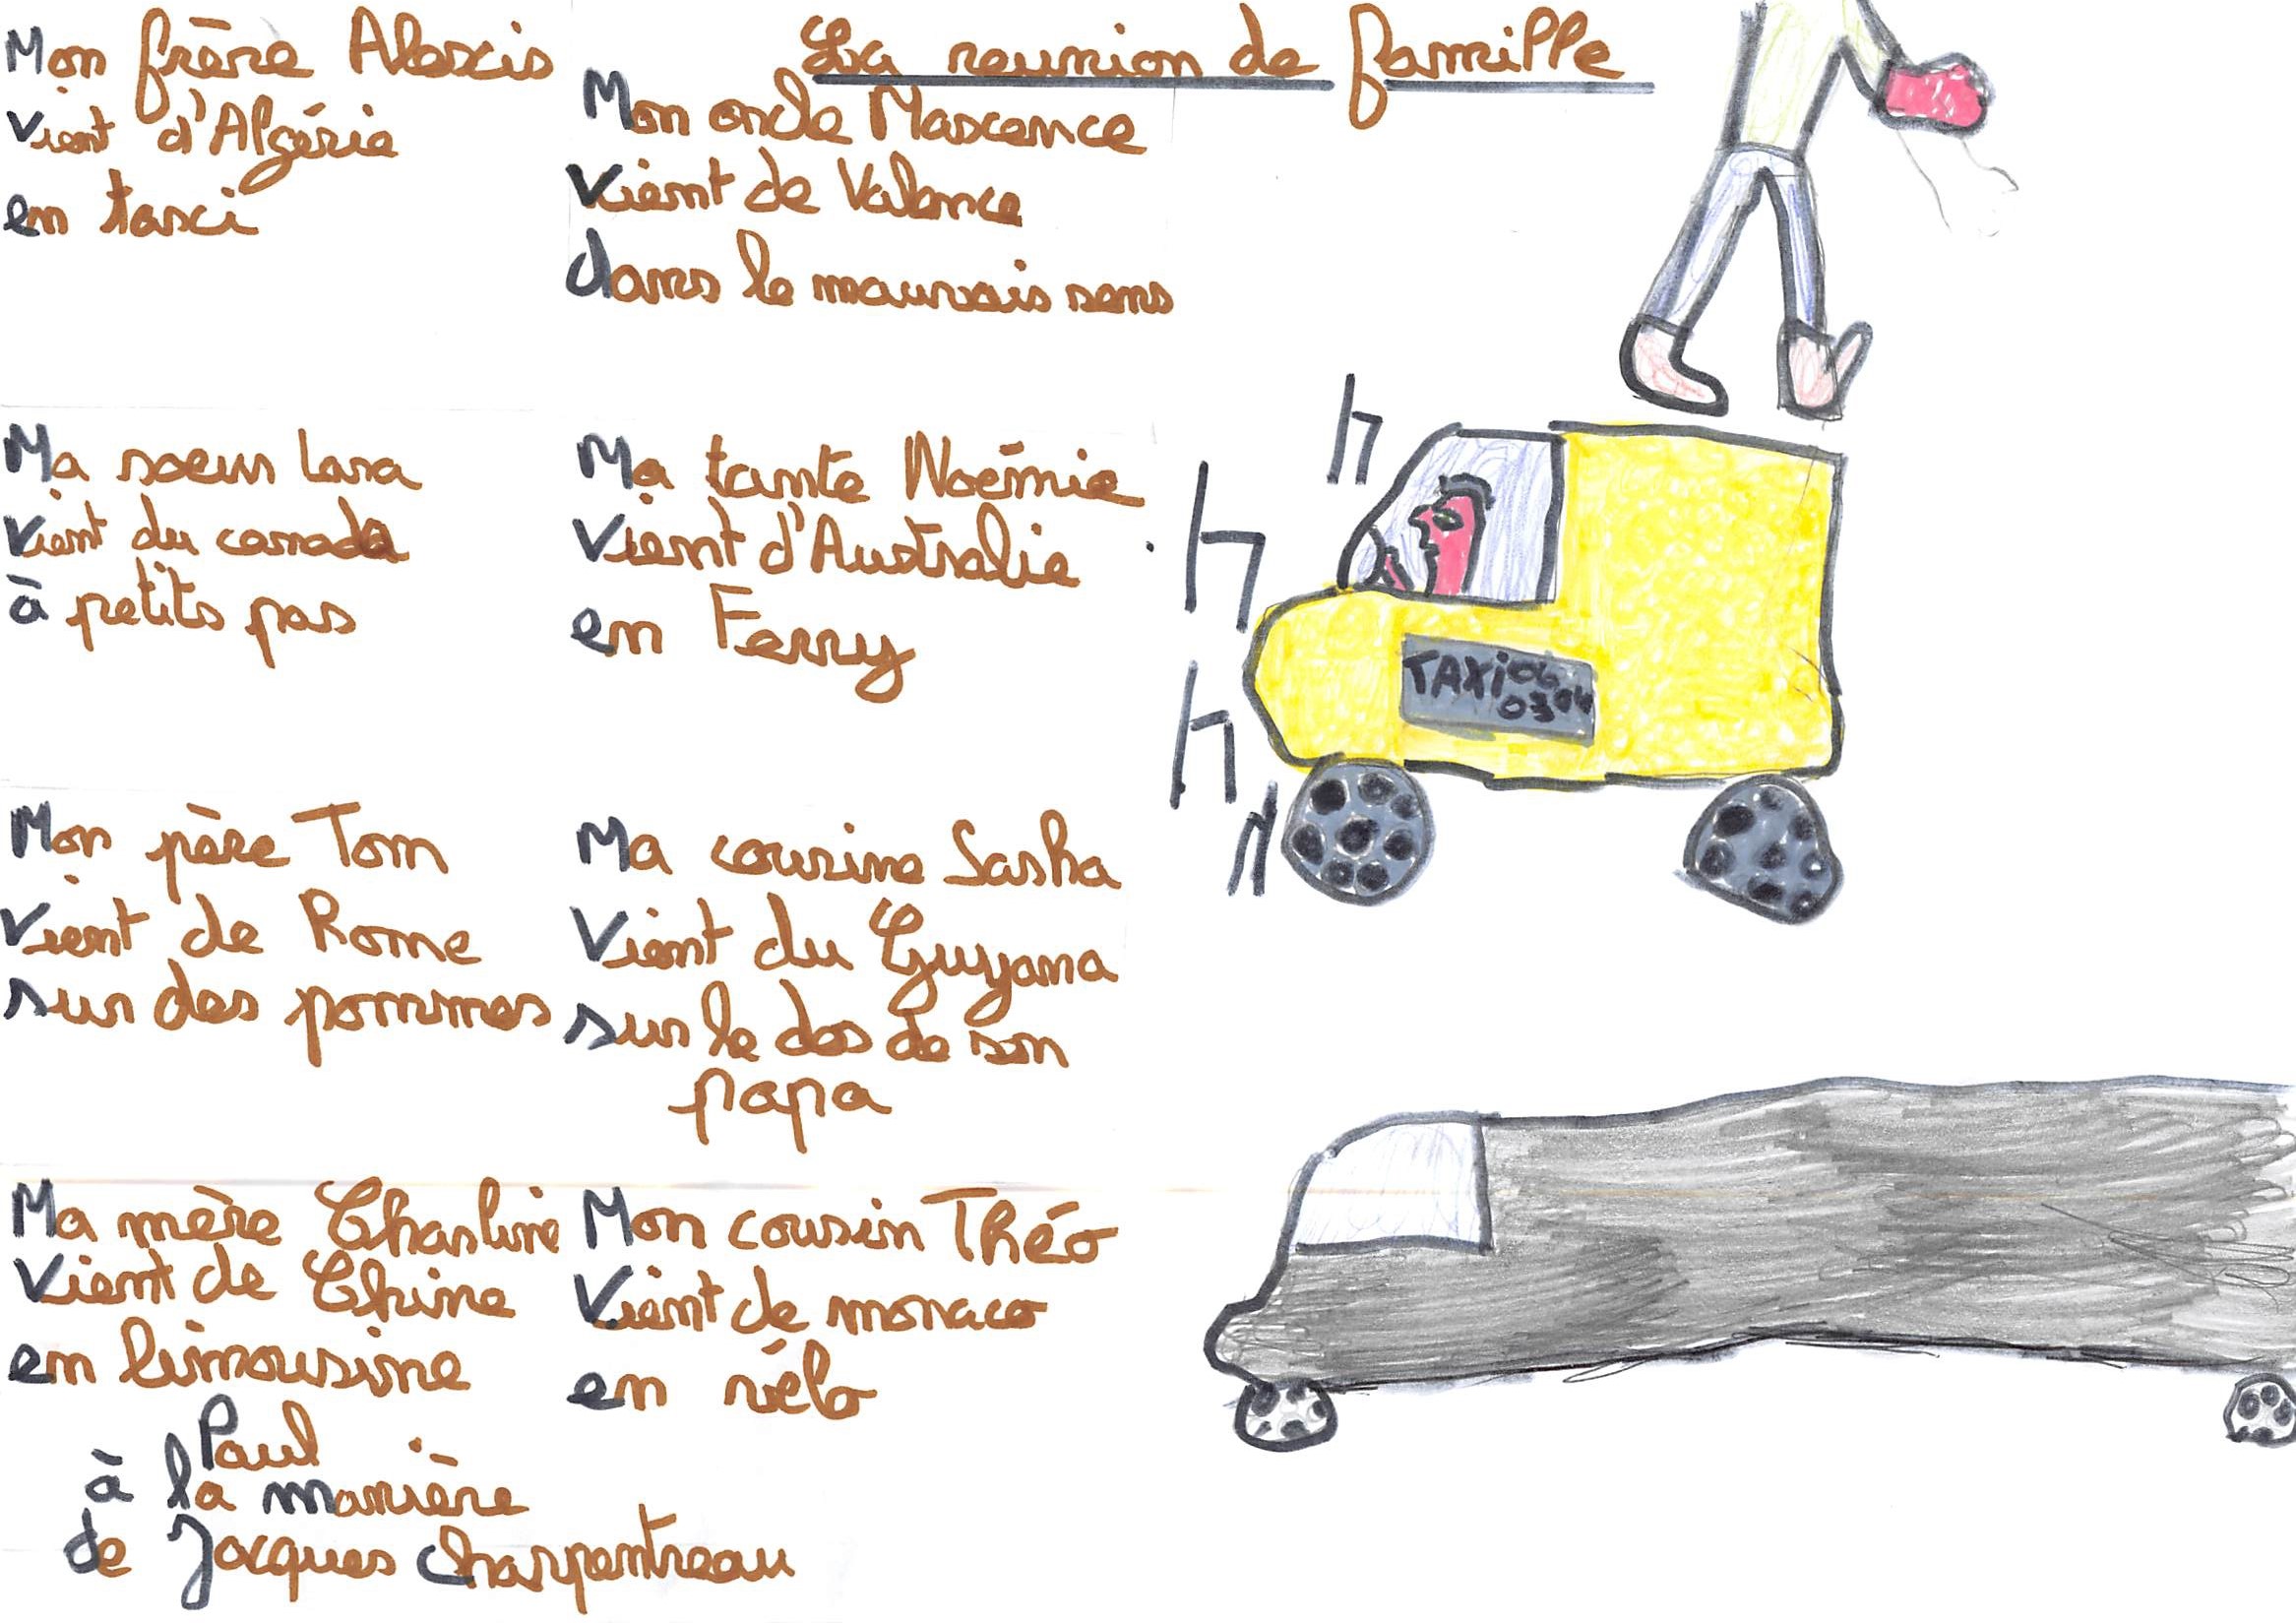 La reunion de famille
Mon frère Alexis
Vient d'Algérie
en taxi
Ma soeur Lara
Vient du canada
à petits pas
Mon père Tom
Vient de Rome
sur des pommes
Ma mère Charline
Vient de Chine
en limousine
Mon oncle Maxence
Vient de Valence
dans le mauvais sens
Ma tante Noémie
Vient d'Australie
en Ferry
Ma cousine Sasha
Vient du Guyana
sur le dos de son
papa
Mon cousin Théo
Vient de monaco
en vélo
Paul
à la manière
de Jacques Charpentreau
TAXi 06
03